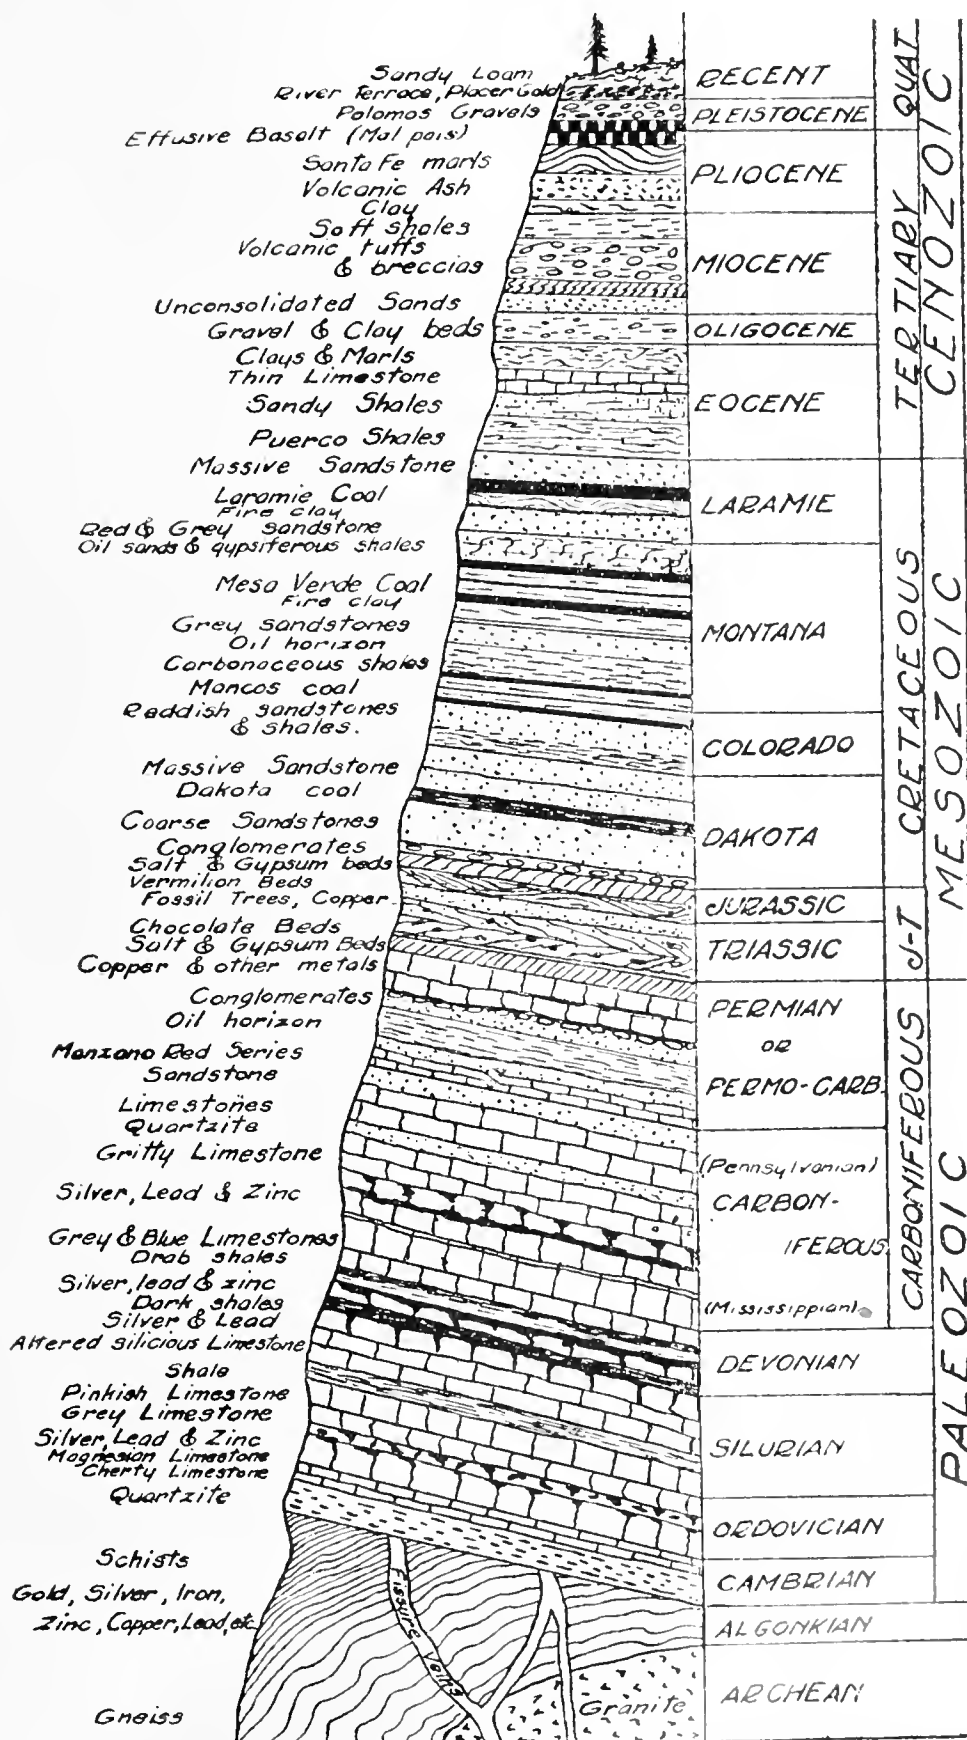 Sandy Loam
River Terrace, Placer Gold
Polomos Gravels
Effusive Basalt (Mal pais)
Santa Fe marls
Volcanic Ash
Clay
Soft shales
Volcanic tuffs
& breccias
Unconsolidated Sands
Gravel & Clay beds
Clays & Marls
Thin Limestone
Sandy Shales
Puerco Shales
Massive Sandstone
Laramie Coal
Fire clay
Red & Grey sandstone
Oil sands & gypsiferous shales
Mesa Verde Coal
Fire clay
Grey sandstones
Oil horizon
Carbonaceous shales
Mancos coal
Reddish sandstones
& shales.
Massive Sandstone
Dakota coal
Coarse Sandstones
Conglomerates
Salt & Gypsum beds
Vermilion Beds
Fossil Trees, Copper
Chocolate Beds
Salt & Gypsum Beds
Copper & other metals
Conglomerates
Oil horizon
Manzano Red Series
Sandstone
Limestones
Quartzite
Gritty Limestone
Silver, Lead & Zinc
Grey & Blue Limestones
Drab shales
Silver, lead & zinc
Dark shales
Silver & Lead
Altered silicious Limestone
Shale
Pinkish Limestone
Grey Limestone
Silver, Lead & Zinc
Magnesian Limestone
Cherty Limestone
Quartzite
Schists
Gold, Silver, Iron,
Zinc, Copper, Lead, etc
Gneiss
Fissure Veins
Granite
RECENT
PLEISTOCENE
PLIOCENE
MIOCENE
OLIGOCENE
EOCENE
LARAMIE
MONTANA
COLORADO
DAKOTA
JURASSIC
TRIASSIC
PERMIAN
OR
PERMO-CARB.
(Pennsylvanian)
CARBON-
IFEROUS
(Mississippian)
DEVONIAN
SILURIAN
ORDOVICIAN
CAMBRIAN
ALGONKIAN
ARCHEAN
QUAT
TERTIARY
CRETACEOUS
J-T
CARBONIFEROUS
CENOZOIC
MESOZOIC
PALEOZOIC